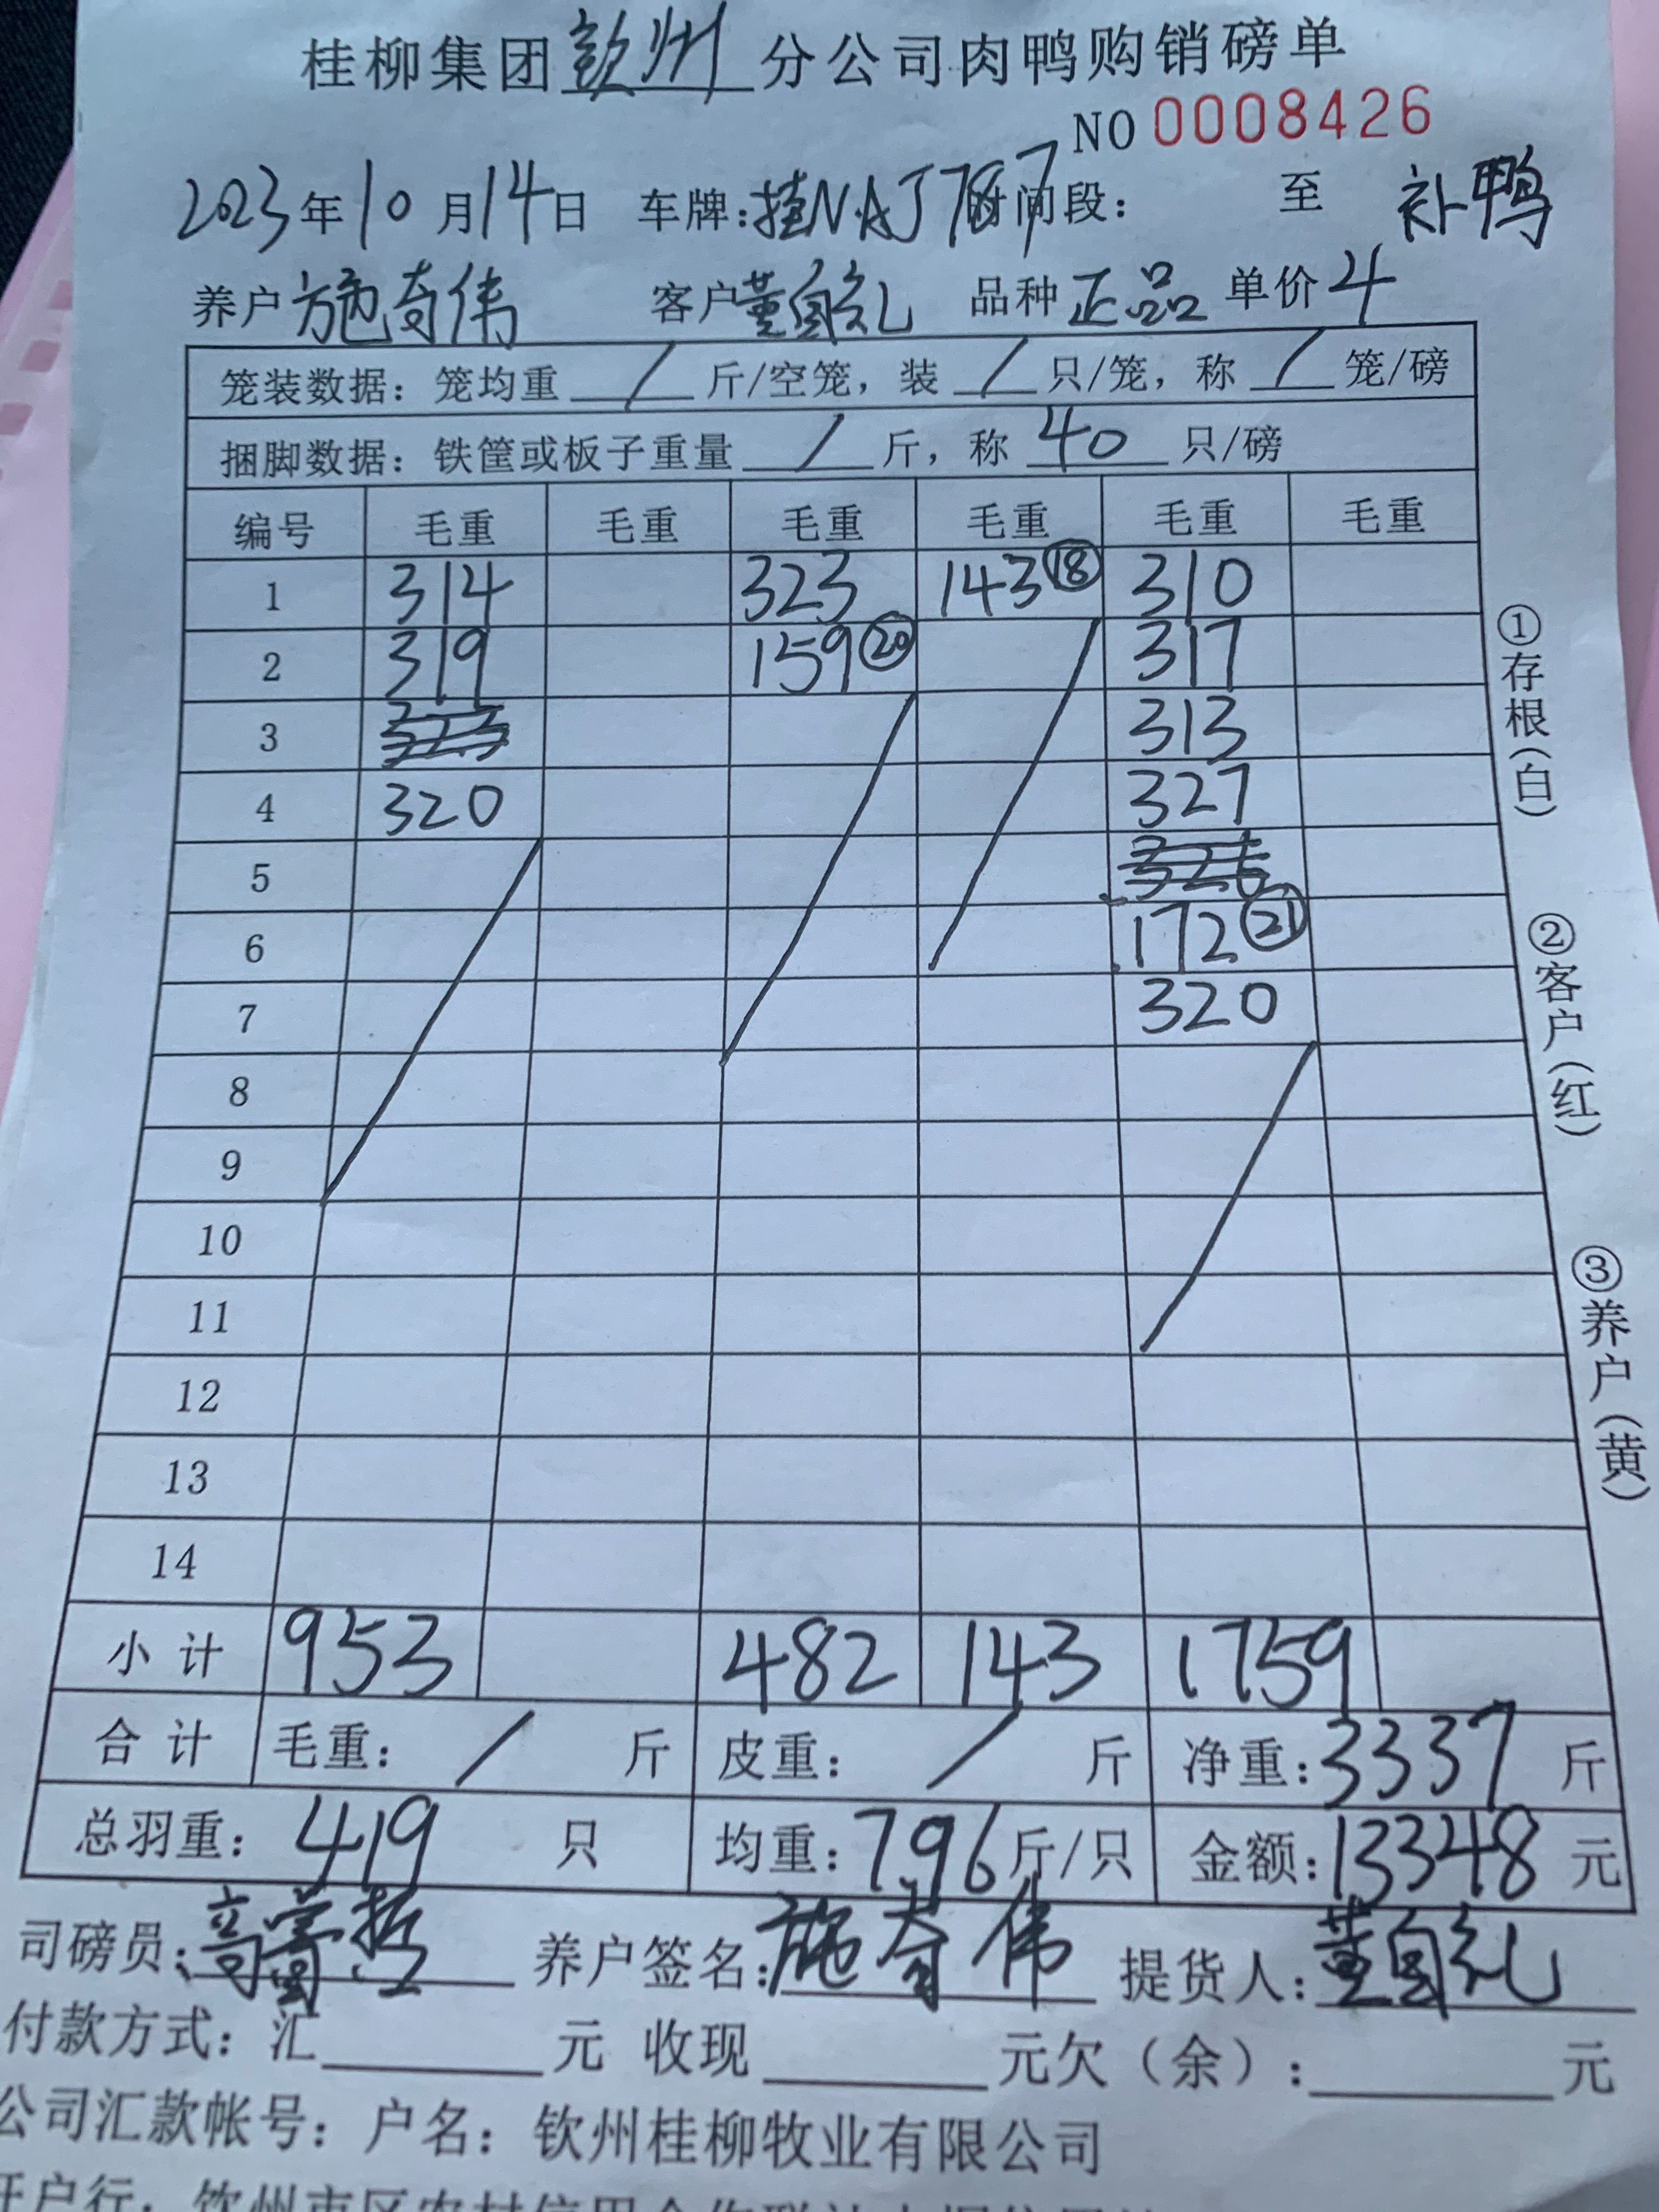 桂柳集团钦州分公司肉鸭购销磅单
NO 0008426
2023年10月14日 车牌:桂NAJ787 时间段: 至 补鸭
养户 施奇伟 客户 董自礼 品种 正品 单价 4
笼装数据:笼均重 / 斤/空笼,装 / 只/笼,称 / 笼/磅
捆脚数据:铁筐或板子重量 / 斤,称 40 只/磅
编号 毛重 毛重 毛重 毛重 毛重 毛重
1 314 323 143⑱ 310
2 319 159⑳ 317
3 313
4 320 327
5
6 172㉑
7 320
8
9
10
11
12
13
14
小计 953 482 143 1759
合计 毛重: / 斤 皮重: / 斤 净重:3337 斤
总羽重: 419 只 均重:7.96斤/只 金额:13348元
司磅员: 养户签名:施奇伟 提货人:董自礼
付款方式:汇 元 收现 元欠(余): 元
公司汇款帐号:户名:钦州桂柳牧业有限公司
开户行:钦州市区农村信用合作联社
①存根(白)
②客户(红)
③养户(黄)